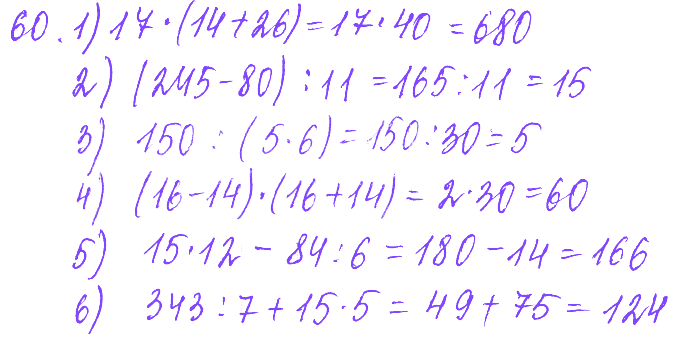 60. 1) 17·(14+26)=17·40=680
2) (245-80):11=165:11=15
3) 150:(5·6)=150:30=5
4) (16-14)·(16+14)=2·30=60
5) 15·12-84:6=180-14=166
6) 343:7+15·5=49+75=124